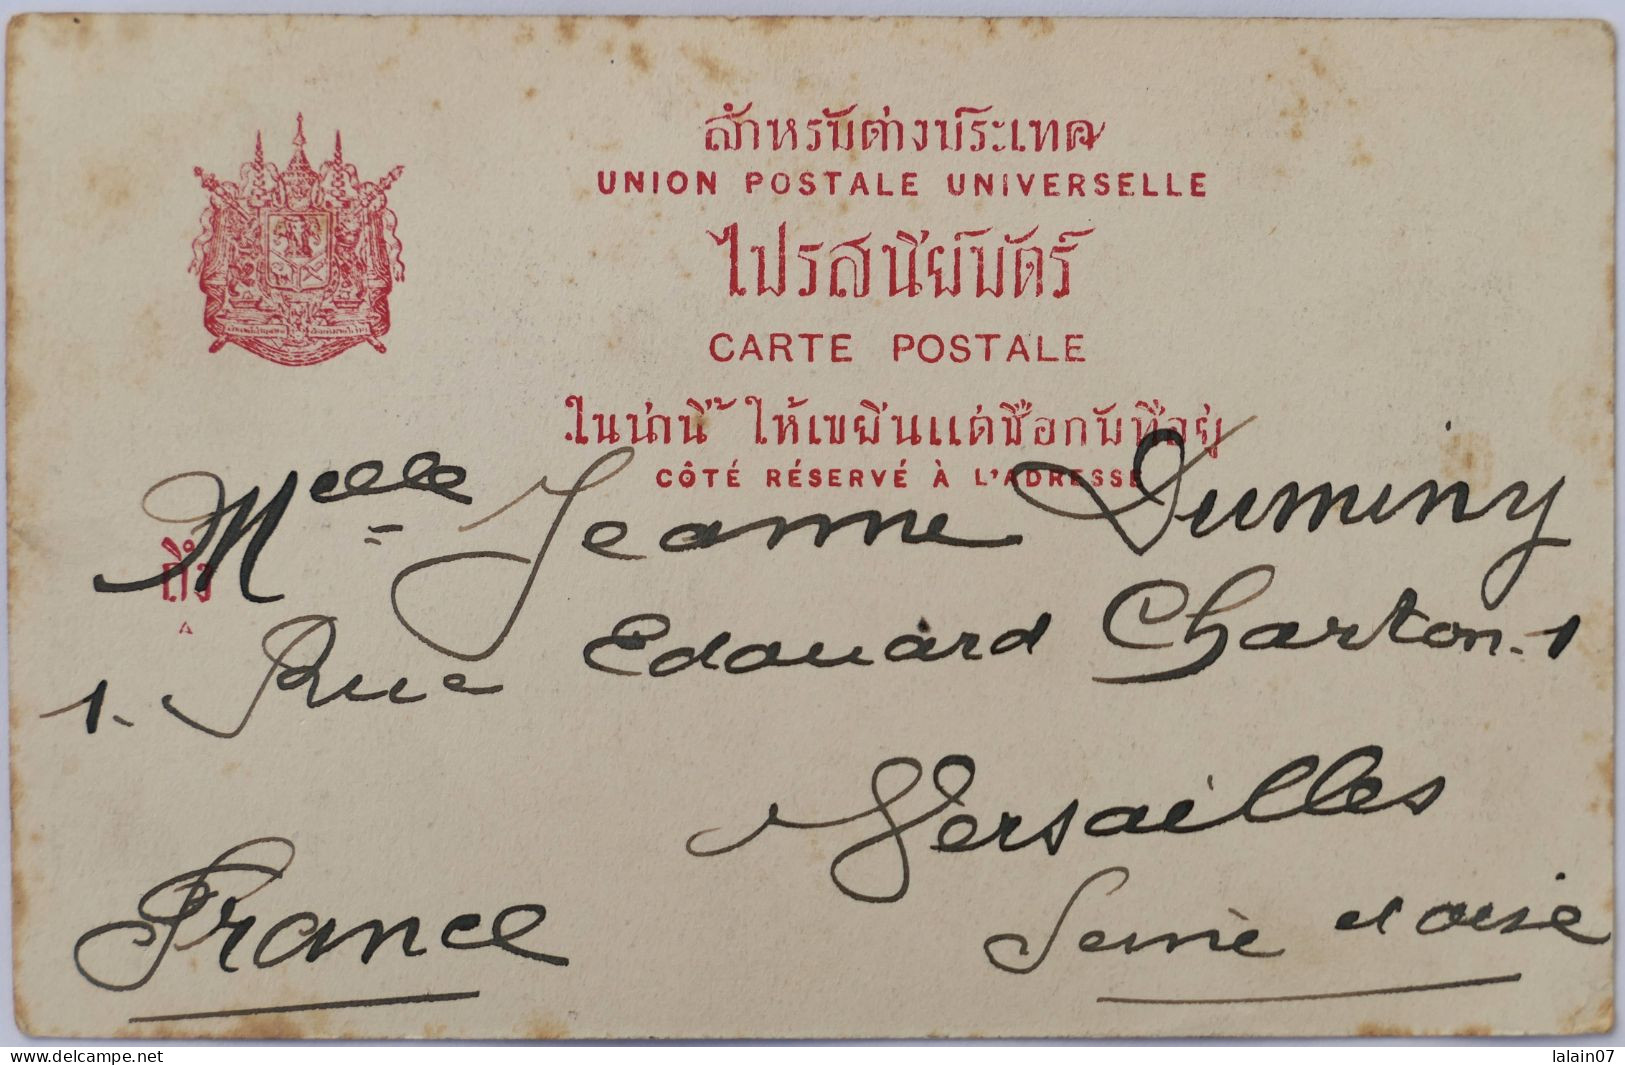 สำหรับต่างประเทศ
UNION POSTALE UNIVERSELLE
ไปรสนีย์บัตร์
CARTE POSTALE
ในน่านี้ ให้เขียนแต่ชื่อกับที่อยู่
CÔTÉ RÉSERVÉ À L'ADRESSE
ถึง
A
Melle Jeanne Duminy
1. Rue Edouard Charton. 1
Versailles
Seine et oise
France
delcampe.net
lalain07